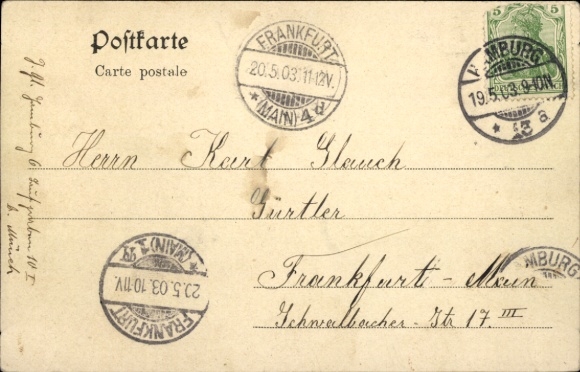 Postkarte
Carte postale
FRANKFURT
20.5.03.11-12V.
* (MAIN) 4 d
5
HAMBURG
19.5.03.9-10N.
* 13 a
Herrn Karl Glauch
Gürtler
Frankfurt-Main
Schwalbacher-Str 17 III
FRANKFURT
20.5.03.10-11V.
(MAIN)
MBURG
Hamburg 6
b. Münch